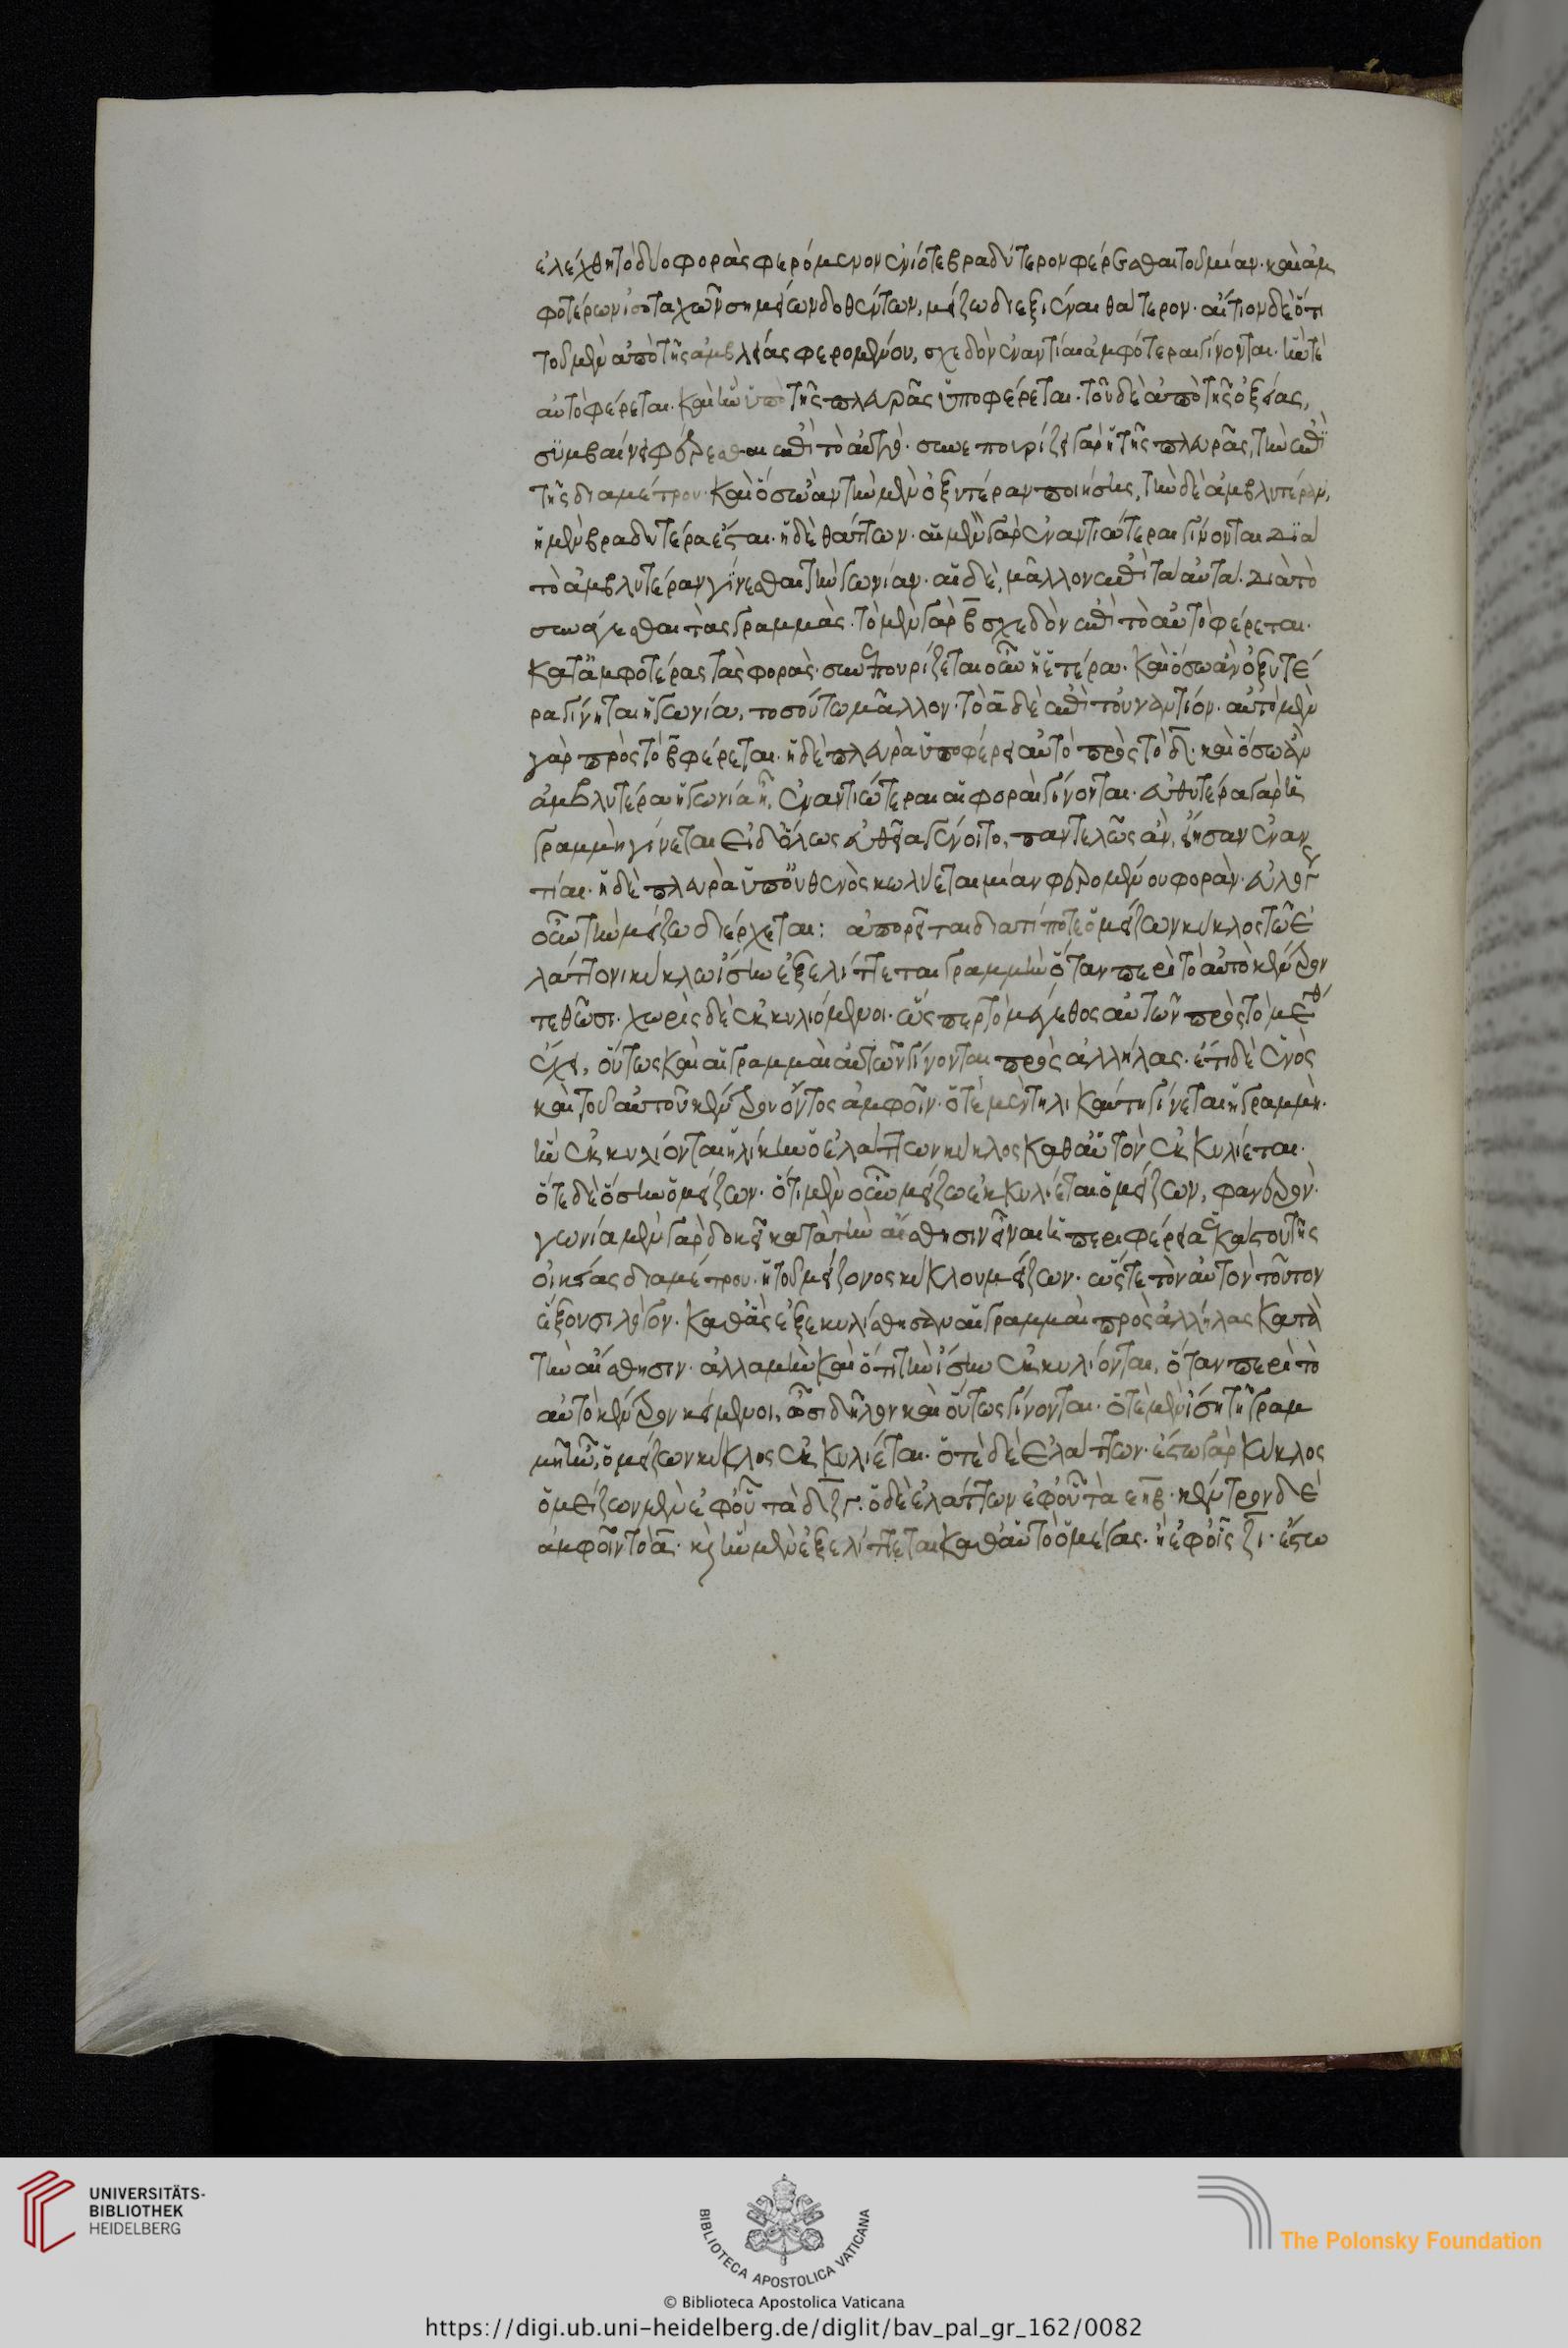 ἐλέχθη τὸ δύο φορὰς φερόμενον ἐνίοτε βραδύτερον φέρεσθαι τοῦ μίαν· καὶ ἀμ
φοτέρων ἰσοταχῶν σημείων δοθέντων, μείζω διεξιέναι θάτερον· αἴτιον δὲ ὅτι
τοῦ μὲν ἀπὸ τῆς ἀμβλείας φερομένου, σχεδὸν ἐναντίαι ἀμφότεραι γίνονται· ἥν τε
αὐτὸ φέρεται· καὶ ἣν ὑπὸ τῆς πλευρᾶς ὑποφέρεται· τοῦ δὲ ἀπὸ τῆς ὀξείας,
συμβαίνει φέρεσθαι ἐπὶ τὸ αὐτό· συνεπουρίζει γὰρ ἡ τῆς πλευρᾶς, τὴν ἐπὶ
τῆς διαμέτρου· καὶ ὅσω ἂν τὴν μὲν ὀξυτέραν ποιήσῃς, τὴν δὲ ἀμβλυτέραν,
ἡ μὲν βραδυτέρα ἔσται· ἡ δὲ θάττων· αἱ μὲν γὰρ ἐναντιώτεραι γίνονται διὰ
τὸ ἀμβλυτέραν γίνεσθαι τὴν γωνίαν· αἱ δὲ, μᾶλλον ἐπὶ τὰ αὐτὰ· διὰ τὸ
συνάγεσθαι τὰς γραμμὰς· τὸ μὲν γὰρ β σχεδὸν ἐπὶ τὸ αὐτὸ φέρεται·
κατ' ἀμφοτέρας τὰς φορὰς· συνεπουρίζεται οὖν ἡ ἑτέρα· καὶ ὅσω ἂν ὀξυτέ
ρα γίνηται ἡ γωνία, τοσούτω μᾶλλον· τὸ α δὲ ἐπὶ τοὐναντίον· αὐτὸ μὲν
γὰρ πρὸς τὸ β φέρεται· ἡ δὲ πλευρὰ ὑποφέρει αὐτὸ πρὸς τὸ δ· καὶ ὅσω ἂν
ἀμβλυτέρα ἡ γωνία ῇ, ἐναντιώτεραι αἱ φοραὶ γίνονται· εὐθυτέρα γὰρ ἡ
γραμμὴ γίνεται εἰ δ' ὅλως εὐθεῖα γένοιτο, παντελῶς ἂν, εἴησαν ἐναν
τίαι· ἡ δὲ πλευρὰ ὑπ' οὐθενὸς κωλύεται μίαν φερομένου φορὰν· εὐλόγως
οὖν τὴν μείζω διέρχεται: ἀπορεῖται διατί ποτε ὁ μείζων κύκλος τῶ ἐ
λάττονι κύκλω ἴσην ἐξελίττεται γραμμὴν ὅταν περὶ τὸ αὐτὸ κέντρον
τεθῶσι· χωρὶς δὲ ἐκκυλιόμενοι· ὥσπερ τὸ μέγεθος αὐτῶν πρὸς τὸ μέγεθος
ἔχει, οὕτως καὶ αἱ γραμμαὶ αὐτῶν γίνονται πρὸς ἀλλήλας· ἔτι δὲ ἑνὸς
καὶ τοῦ αὐτοῦ κέντρου ὄντος ἀμφοῖν· ὁτὲ μὲν τηλικαύτη γίνεται ἡ γραμμὴ·
ἣν ἐκκυλίονται ἡλίκην ὁ ἐλάττων κύκλος καθ' αὑτὸν ἐκκυλίεται·
ὁτὲ δὲ ὅσην ὁ μείζων· ὅτι μὲν οὖν μείζω ἐκκυλίεται ὁ μείζων, φανερὸν·
γωνία μὲν γὰρ δοκεῖ κατὰ τὴν αἴσθησιν εἶναι ἡ περιφέρεια ἑκάστου τῆς
οἰκείας διαμέτρου· ἡ τοῦ μείζονος κύκλου μείζων· ὥστε τὸν αὐτὸν τοῦτον
ἕξουσι λόγον· καθ' ἃς ἐξεκυλίσθησαν αἱ γραμμαὶ πρὸς ἀλλήλας κατὰ
τὴν αἴσθησιν· ἀλλαμὴν καὶ ὅτι τὴν ἴσην ἐκκυλίονται, ὅταν περὶ τὸ
αὐτὸ κέντρον κείμενοι, ὦσι δῆλον καὶ οὕτως γίνονται· ὁτὲ μὲν ἴση τῆ γραμ
μῆ ἣν, ὁ μείζων κύκλος ἐκκυλίεται· ὁτὲ δὲ ἐλάττων· ἔστω γὰρ κύκλος
ὁ μείζων μὲν ἐφ' οὗ τὰ δζγ· ὁ δὲ ἐλάττων ἐφ' οὗ τὰ εηβ· κέντρον δὲ
ἀμφοῖν τὸ α· κ ἣν μὲν ἐξελίττεται καθ' αὑτὸ ὁ μέγας· ἡ ἐφ' οἷς ζι· ἔστω
UNIVERSITÄTS-
BIBLIOTHEK
HEIDELBERG
BIBLIOTECA APOSTOLICA VATICANA
The Polonsky Foundation
© Biblioteca Apostolica Vaticana
https://digi.ub.uni-heidelberg.de/diglit/bav_pal_gr_162/0082